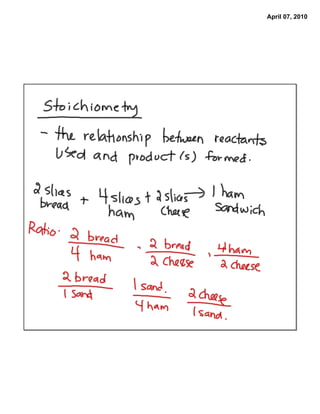 April 07, 2010
Stoichiometry
- the relationship between reactants
used and product(s) formed.
2 slices bread + 4 slices ham + 2 slices cheese → 1 ham sandwich
Ratio: 2 bread / 4 ham , 2 bread / 2 cheese , 4 ham / 2 cheese
2 bread / 1 sand 1 sand. / 4 ham 2 cheese / 1 sand.